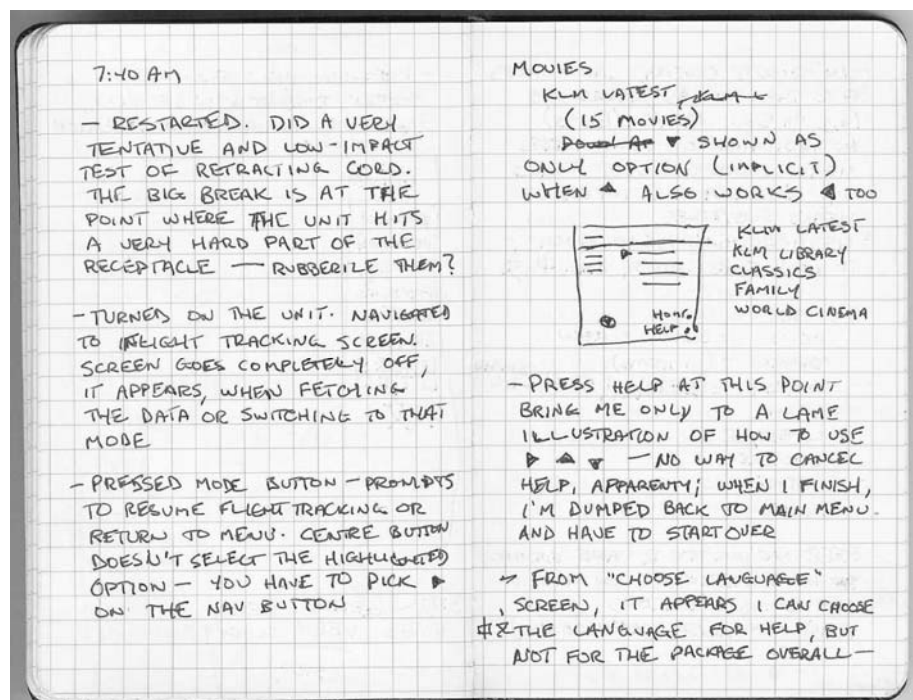 7:40 AM
— RESTARTED. DID A VERY
TENTATIVE AND LOW-IMPACT
TEST OF RETRACTING CORD.
THE BIG BREAK IS AT THE
POINT WHERE THE UNIT HITS
A VERY HARD PART OF THE
RECEPTACLE — RUBBERILE THEM?
— TURNED ON THE UNIT. NAVIGATED
TO INFLIGHT TRACKING SCREEN.
SCREEN GOES COMPLETELY OFF,
IT APPEARS, WHEN FETCHING
THE DATA OR SWITCHING TO THAT
MODE
— PRESSED MODE BUTTON — PROMPTS
TO RESUME FLIGHT TRACKING OR
RETURN TO MENU. CENTRE BUTTON
DOESN'T SELECT THE HIGHLIGHTED
OPTION — YOU HAVE TO PICK ▶
ON THE NAV BUTTON
MOVIES
KLM LATEST
(15 MOVIES)
▼ SHOWN AS
ONLY OPTION (IMPLICIT)
WHEN ▲ ALSO WORKS ◀ TOO
KLM LATEST
KLM LIBRARY
CLASSICS
FAMILY
WORLD CINEMA
HOME
HELP
— PRESS HELP AT THIS POINT
BRING ME ONLY TO A LAME
ILLUSTRATION OF HOW TO USE
▶ ▲ ▼ — NO WAY TO CANCEL
HELP, APPARENTY; WHEN I FINISH,
I'M DUMPED BACK TO MAIN MENU.
AND HAVE TO START OVER
— FROM "CHOOSE LANGUAGE"
SCREEN, IT APPEARS I CAN CHOOSE
THE LANGUAGE FOR HELP, BUT
NOT FOR THE PACKAGE OVERALL —